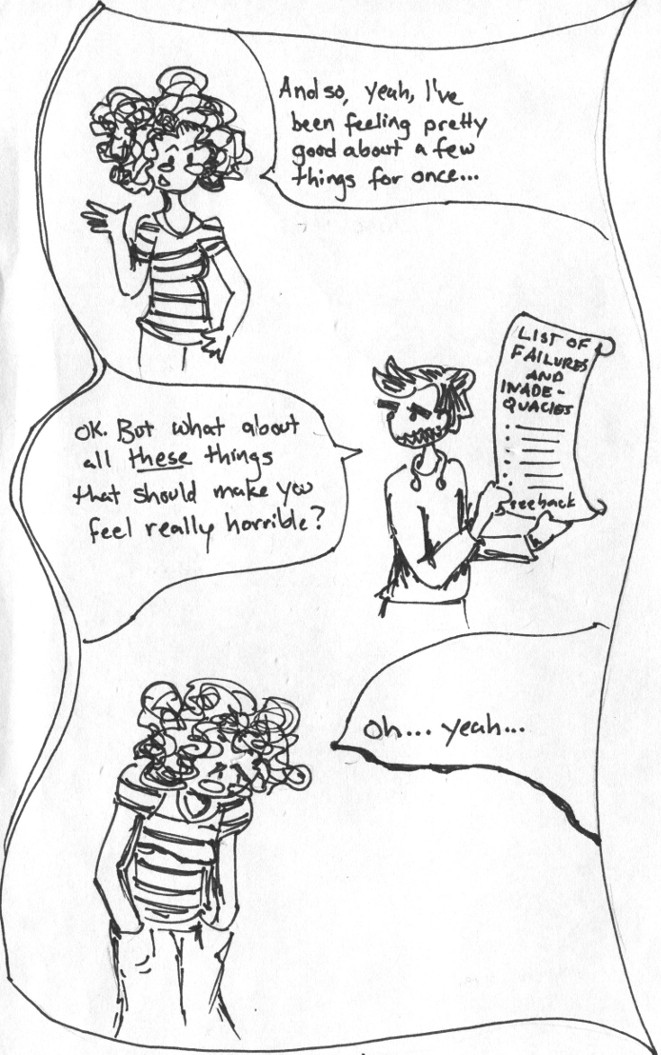 And so, yeah, I've
been feeling pretty
good about a few
things for once...
LIST OF
FAILURES
AND
INADE-
QUACIES
see back
OK. But what about
all these things
that should make you
feel really horrible?
Oh... yeah...